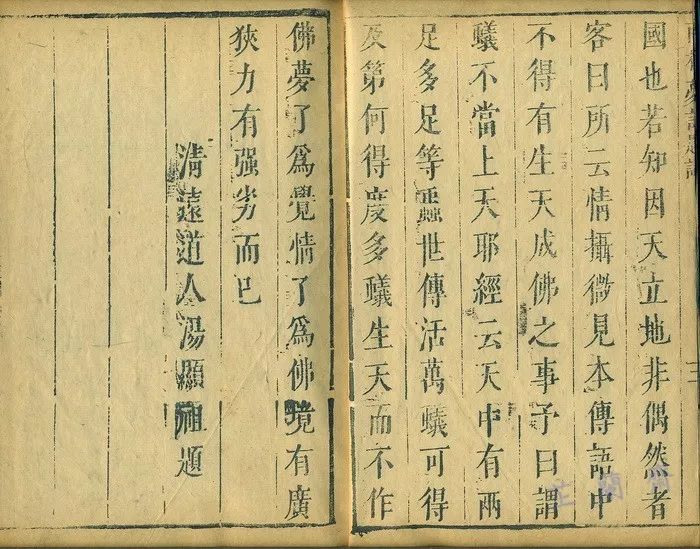 國也若知因天立地非偶然者
客曰所云情攝微見本傳語中
不得有生天成佛之事予曰謂
蟻不當上天耶經云天中有兩
足多足等蟲世傳活萬蟻可得
及第何得度多蟻生天而不作
佛夢了爲覺情了爲佛境有廣
狹力有强劣而已
清遠道人湯顯祖題